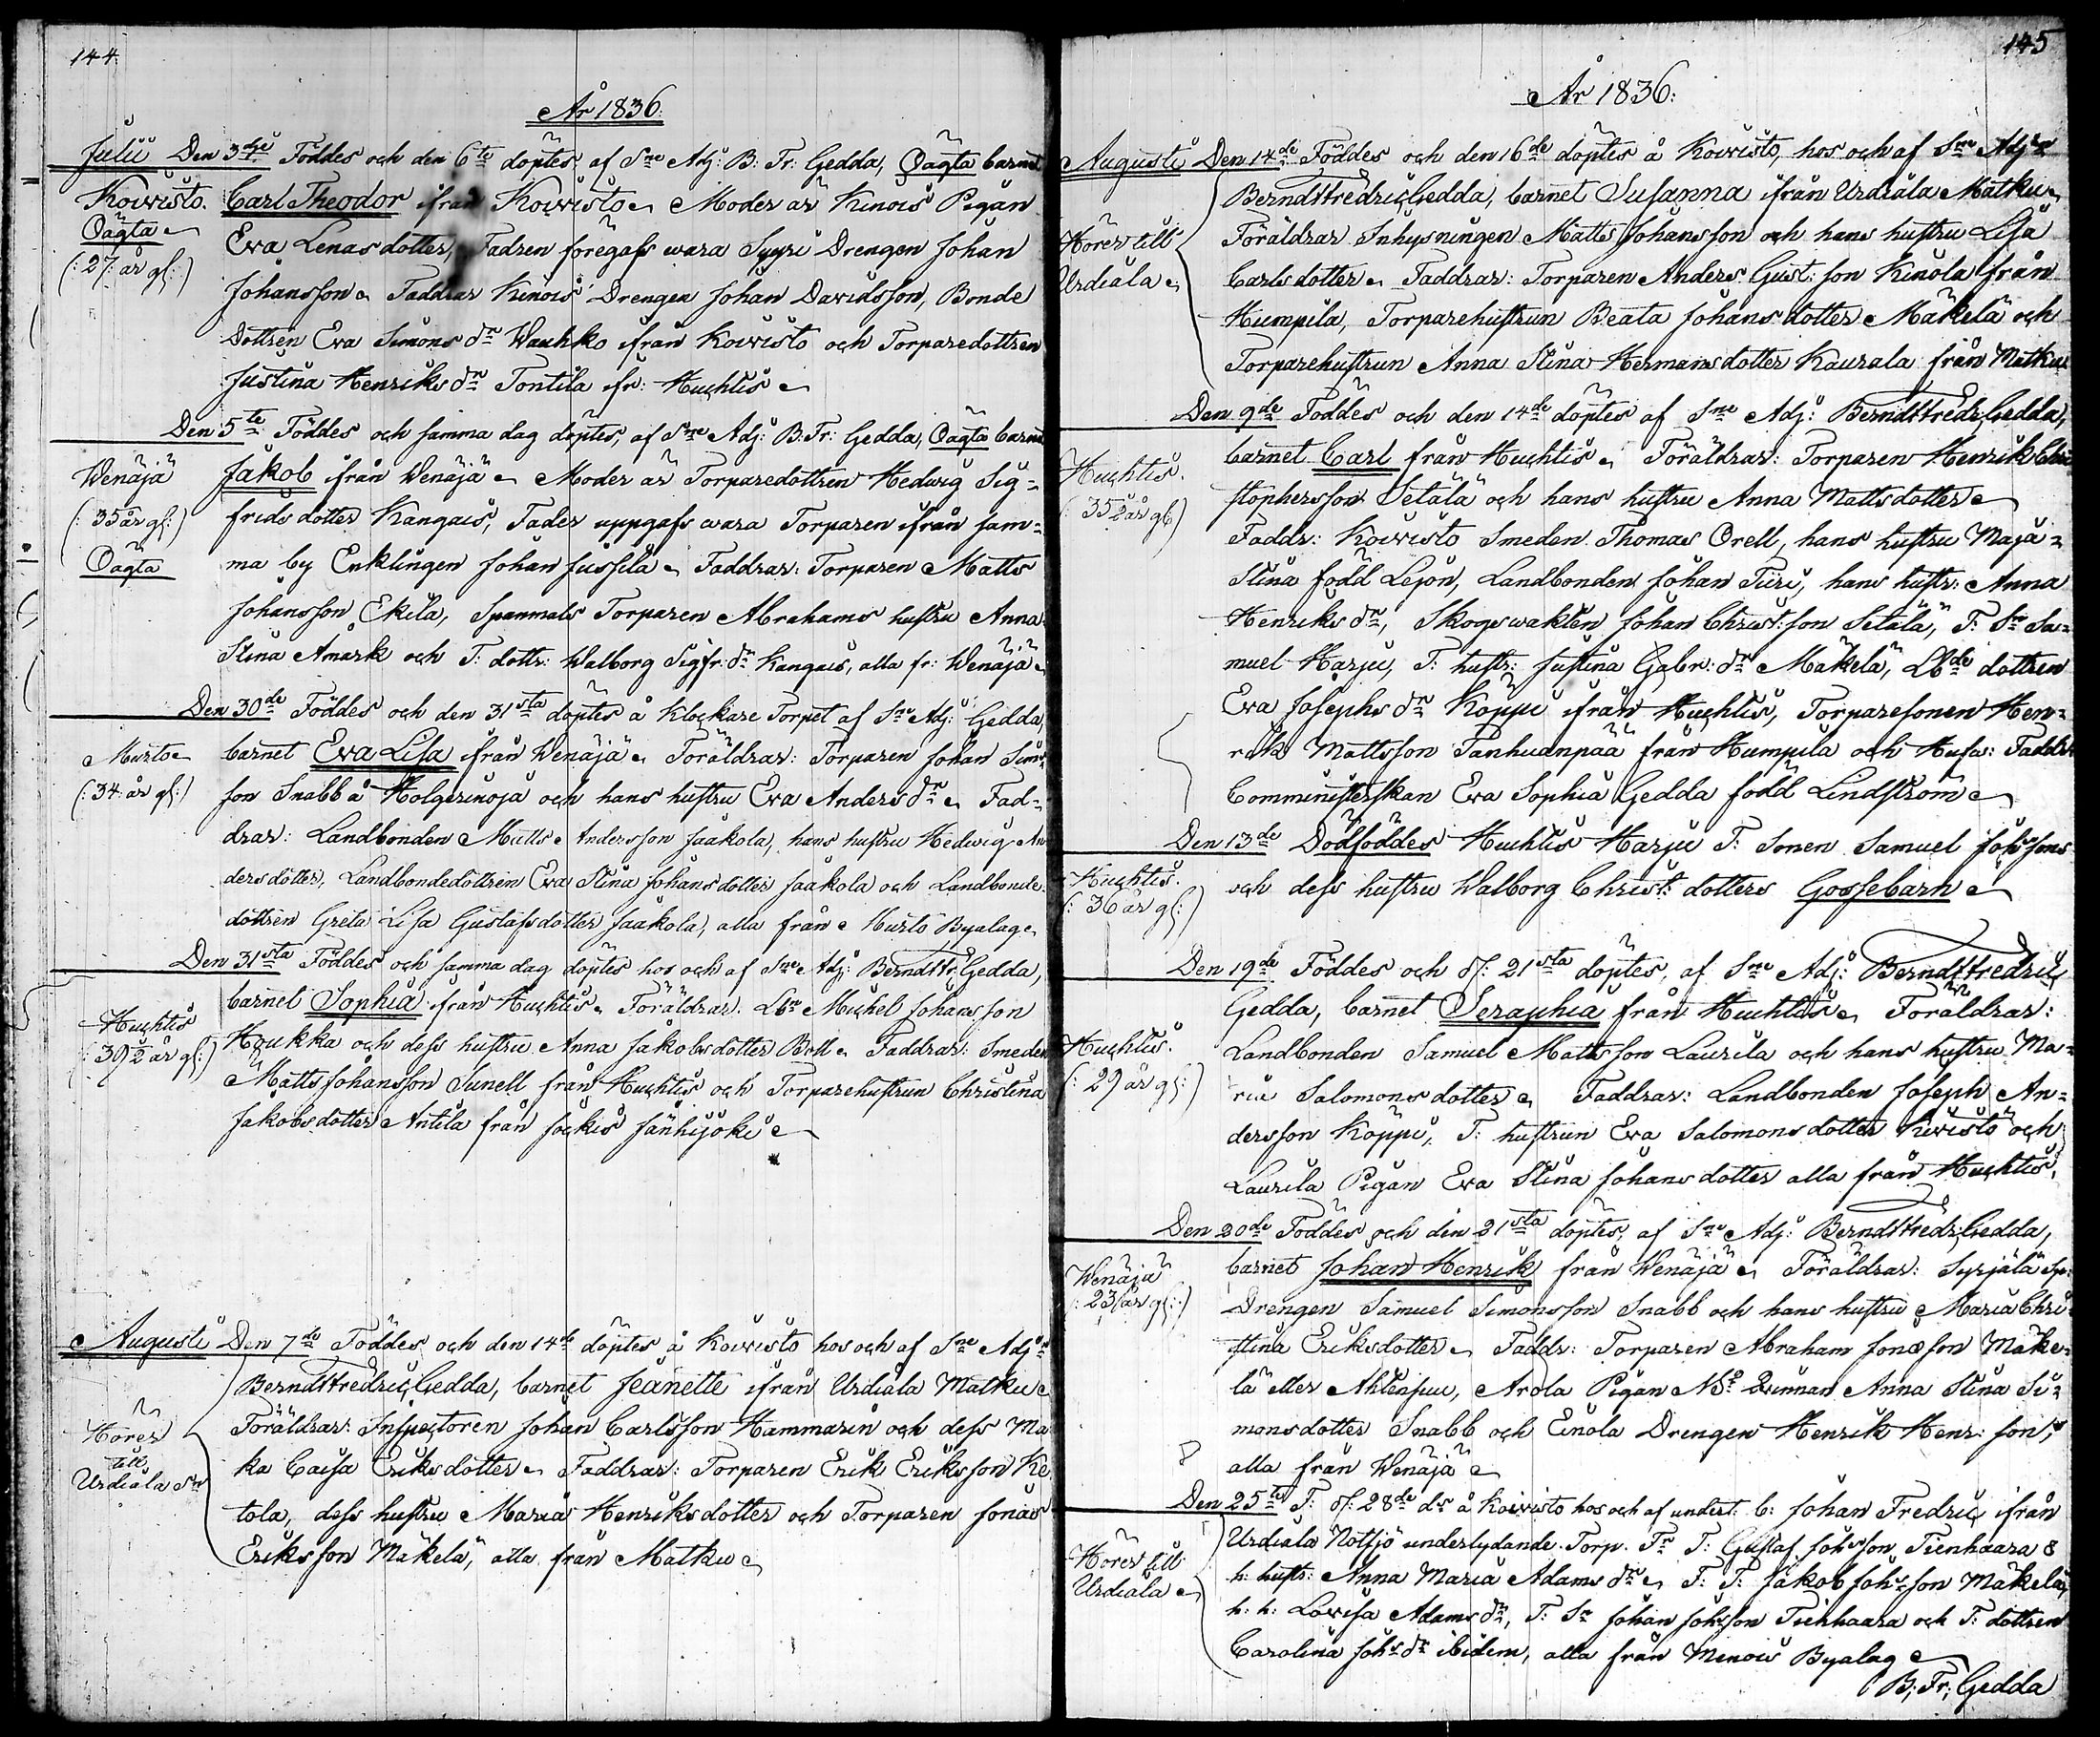 144.
År 1836.
Julii Den 3dje Föddes och den 6te döptes af Sne Adj: B: Fr: Gedda, Oägta barnet
Koivisto. Carl Theodor ifrån Koivisto. Moder är Kinois Pigan
Oägta Eva Lenasdotter, Fadren föregafs wara Syyri Drengen Johan
(:27 år gl:) Johansson. Faddrar Kinois Drengen Johan Davidsson, Bonde
Dottren Eva Simons dr Wauhko ifrån Koivisto och Torparedottren
Justina Henriks dr Tontila ifr: Huchtis
Den 5te Föddes och samma dag döptes, af Sne Adj: B: Fr: Gedda, Oägta barnet
Wenäjä Jakob ifrån Wenäjä. Moder är Torparedottren Hedwig Sig=
(:35 år gl:) frids dotter Kangais, Fader uppgafs wara Torparen ifrån sam=
Oägta ma by Enklingen Johan Jussila. Faddrar: Torparen Matts
Johansson Ekila, Spannmals Torparen Abrahams hustru Anna
Stina Åmark och T: dottr: Walborg Sigfr: dr Kangais, alla fr: Wenäjä
Den 30de Föddes och den 31sta döptes å Klockare Torpet af Sne Adj: Gedda,
Murto barnet Eva Lisa ifrån Wenäjä. Föräldrar: Torparen Johan Sim:
(:34 år gl:) son Snabb å Holgerinoja och hans hustru Eva Anders dr. Fad=
drar: Landbonden Matts Andersson Jaakola, hans hustru Hedwig An
dersdotter, Landbondedottren Eva Stina Johansdotter Jaakola och Landbonde
dottren Greta Lisa Gustafsdotter Jaakola, alla från Murto Byalag.
Den 31sta Föddes och samma dag döptes hos och af Sne Adj: Berndt Fr: Gedda,
barnet Sophia ifrån Huchtis. Föräldrar. Lbn Mickel Johansson
Huchtis Houkka och dess hustru Anna Jakobsdotter Boll. Faddrar: Smeden
(:39½ år gl:) Matts Johansson Sunell från Huchtis och Torparehustrun Christina
Jakobsdotter Antila från Jockis Jänhijoki
Augusti Den 7de Föddes och den 14de döptes å Koivisto hos och af Sne Adj:
Berndt Fredric Gedda, barnet Jeanette ifrån Urdiala Matku
Hörer Föräldrar: Inspectoren Johan Carlsson Hammarin och dess Ma
till ka Caisa Eriksdotter. Faddrar: Torparen Erik Eriksson Ke
Urdiala Sn tola, dess hustru Maria Henriksdotter och Torparen Jonas
Eriksson Mäkelä, alla från Matku
145
År 1836:
Augusti Den 14de Föddes och den 16de döptes å Koivisto, hos och af Sne Adj:
Berndt Fredric Gedda, barnet Susanna ifrån Urdiala Matku
Hörer till Föräldrar Inhysningen Matts Johansson och hans hustru Lisa
Urdiala Carlsdotter. Faddrar: Torparen Anders Gust: son Kinola från
Humpila, Torparehustrun Beata Johansdotter Mäkelä och
Torparehustrun Anna Stina Hermansdotter Kaurala från Matku
Den 9de Föddes och den 14de döptes af Sne Adj: Berndt Fredr: Gedda,
Huchtis. barnet Carl från Huchtis. Föräldrar: Torparen Henrik Chri
(:35½ år gl:) stophersson Setälä och hans hustru Anna Mattsdotter
Faddr: Koivisto Smeden Thomas Orell, hans hustru Maja=
Stina född Lejon, Landbonden Johan Tiiri, hans hustr: Anna
Henriks dr, Skogswakten Johan Christ: son Setälä, T: Sn Sa=
muel Harju, T: hustr: Justina Gabr: dr Mäkelä, Lbde dottren
Eva Josephs dr Köppi ifrån Huchtis, Torparesonen Hen=
rik Mattsson Tanhuanpää från Humpila och Hufw: Faddr
Comministerskan Eva Sophia Gedda född Lindström
Den 13de Dödföddes Huchtis Harju T: Sonen Samuel Johssons
Huchtis. och dess hustru Walborg Christ: dotters Gossebarn
(:36 år gl:)
Den 19de Föddes och d: 21sta döptes, af Sne Adj: Berndt Fredric
Gedda, barnet Seraphia från Huchtis. Föräldrar:
Huchtis. Landbonden Samuel Mattsson Laurila och hans hustru Ma=
(:29 år gl:) ria Salomonsdotter. Faddrar: Landbonden Joseph An=
dersson Köppi, T: hustrun Eva Salomonsdotter Kivistö och
Laurila Pigan Eva Stina Johansdotter alla från Huchtis,
Den 20de Föddes och den 21sta döptes, af Sne Adj: Berndt Fredr: Gedda,
Wenäjä barnet Johan Henrik från Wenäjä. Föräldrar: Syrjälä Sp:
(:23 år gl:) Drengen Samuel Simonsson Snabb och hans hustru Maria Chri
stina Eriksdotter. Faddr: Torparen Abraham Jonæson Mäke=
lä eller Ahlensuu, Arola Pigan Qwinnan Anna Stina Si=
monsdotter Snabb och Einola Drengen Henrik Henr: son,
alla från Wenäjä
Den 25te F: d: 28de ds å Koivisto hos och af undert. b: Johan Fredric ifrån
Urdiala Notsjö underlydande Torp. Fr T: Gustaf Johsson Tienhaara &
Hörer till h: hustr: Anna Maria Adams dr. F: T: Jakob Johsson Mäkelä,
Urdiala h: h: Lovisa Adams dr, T: Sn Johan Johsson Tienhaara och T: dottren
Carolina Johs dr ibidem, alla från Menois Byalag
B: Fr: Gedda